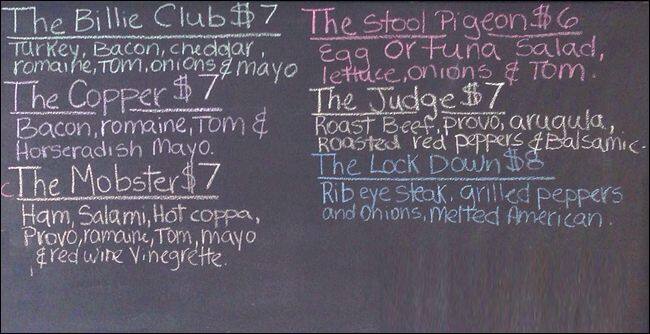 The Billie Club $7
Turkey, Bacon, cheddar,
romaine, Tom, onions & mayo
The Copper $7
Bacon, romaine, Tom &
Horseradish Mayo.
The Mobster $7
Ham, Salami, Hot coppa,
Provo, romaine, Tom, mayo
& red wine Vinegrette.
The Stool Pigeon $6
Egg Or Tuna Salad,
lettuce, onions & Tom.
The Judge $7
Roast Beef, provo, arugula,
Roasted red peppers & Balsamic.
The Lock Down $8
Ribeye steak, grilled peppers
and Onions, Melted American.